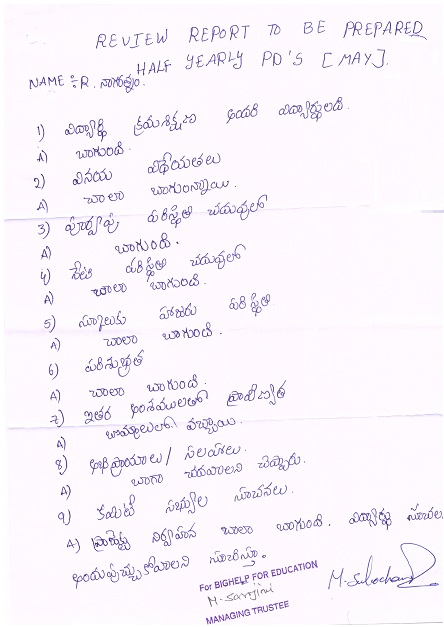 REVIEW REPORT TO BE PREPARED
HALF YEARLY PD'S [MAY].
NAME :- R. నాగరత్నం.
1) విద్యార్థి క్రమశిక్షణ అందరి విద్యార్థులది.
A) బాగుంది.
2) వినయ విధేయతలు
A) చాలా బాగున్నాయి.
3) పూర్వపు పరిస్థితి చదువులో
A) బాగుంది.
4) నేటి పరిస్థితి చదువులో
A) చాలా బాగుంది.
5) స్కూలుకు హాజరు పరిస్థితి
A) చాలా బాగుంది.
6) పరిశుభ్రత
A) చాలా బాగుంది.
7) ఇతర అంశములలో ప్రావీణ్యత
A) వచ్చాయి.
8) అభిప్రాయాలు / సలహాలు.
A) బాగా చదవాలని చెప్పారు.
9) కమిటీ సభ్యుల సూచనలు.
A) ప్రాజెక్టు నిర్వహన చాలా బాగుంది. విద్యార్థు
సూచిస్తూ.
For BIGHELP FOR EDUCATION
M. Sarojini
MANAGING TRUSTEE